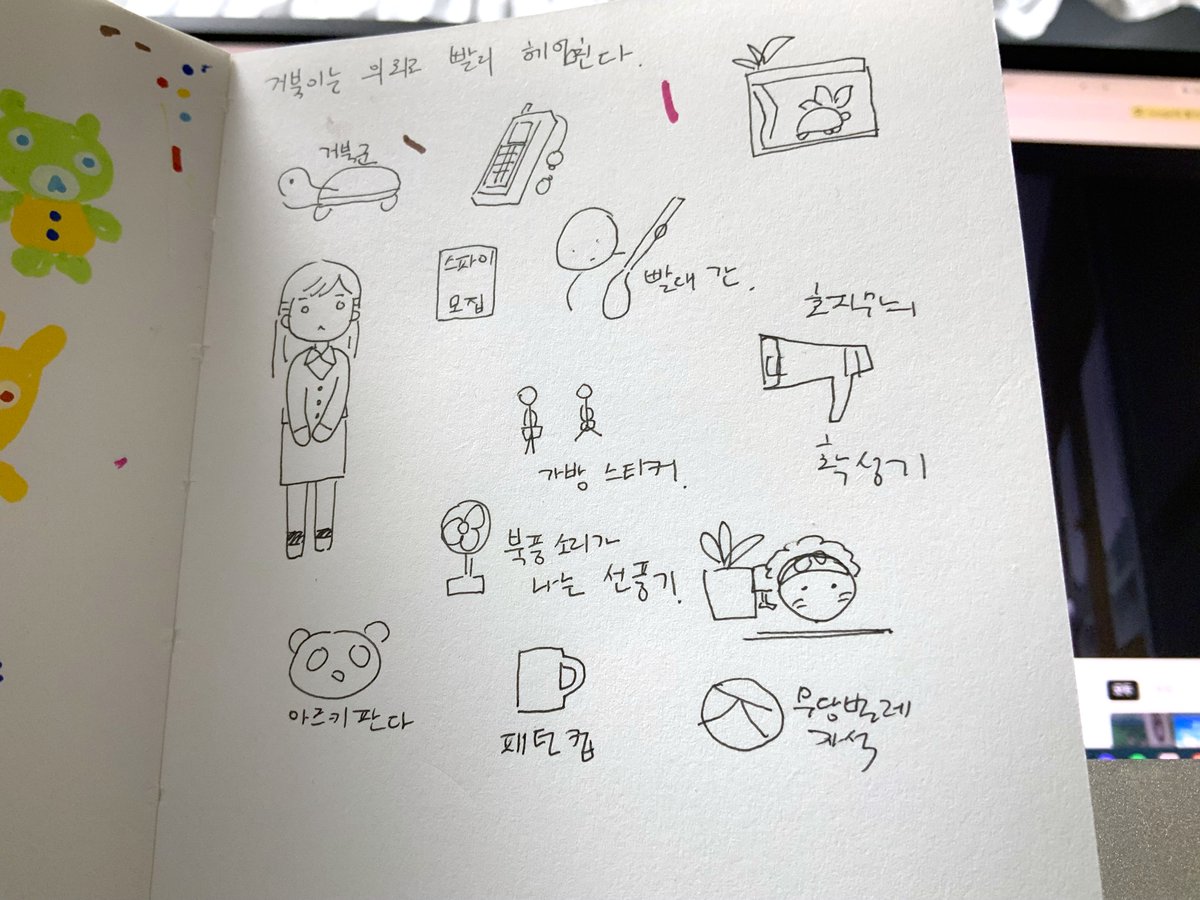 거북이는 의외로 빨리 헤엄친다.
거북군
스파이
모집
빨대 간.
호지무늬
확성기
가방 스티커.
북풍 소리가
나는 선풍기.
아르키 판다
패턴 컵
무당벌레
자석